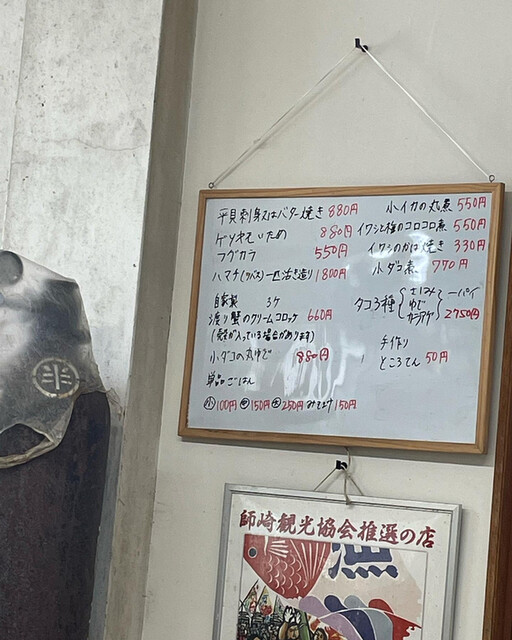 平貝刺身又はバター焼き 880円
ゲソ天といため 880円
フグカラ 550円
ハマチ(ワラサ)一匹活き造り 1800円
自家製 3ケ
渡り蟹のクリームコロッケ 660円
(殻が入っている場合があります)
小ダコの丸ゆで 880円
単品ごはん
小100円 中150円 大250円 みそ汁150円
小イカの丸煮 550円
イワシと梅のコロコロ煮 550円
イワシのかば焼き 330円
小ダコ煮 770円
タコ3種 さしみ ゆで カラアゲ 一パイ 2750円
手作り
ところてん 50円
師崎観光協会推選の店